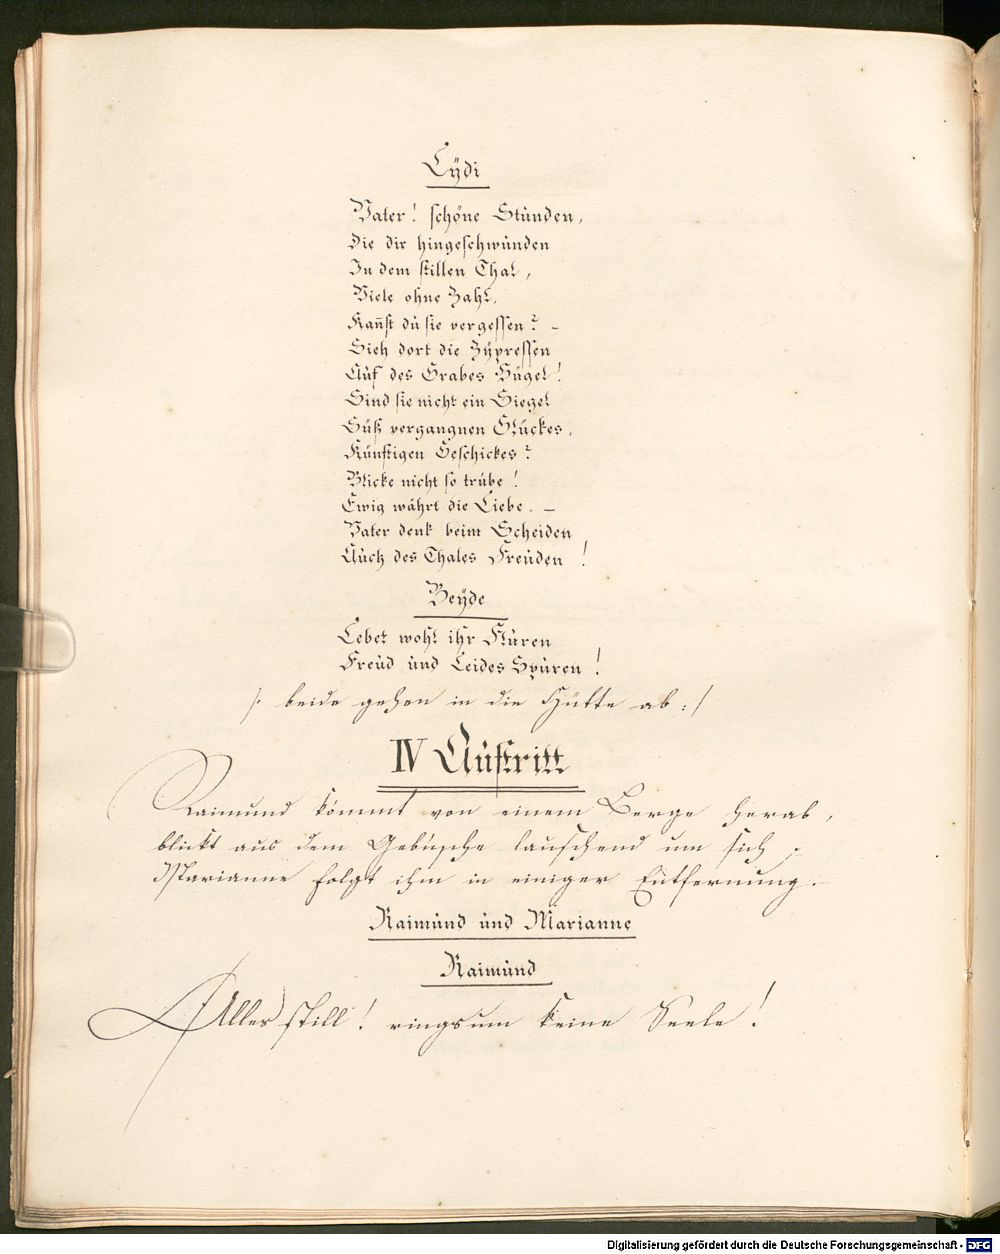 Lÿdi
Vater! schöne Stunden,
Die dir hingeschwunden
In dem stillen Thal,
Viele ohne Zahl,
Kan̄st du sie vergessen? –
Sieh dort die Zÿpressen
Auf des Grabes Hügel!
Sind sie nicht ein Siegel
Süß vergangnen Glückes,
Künftigen Geschickes?
Blicke nicht so trübe!
Ewig währt die Liebe. –
Vater denk beim Scheiden
Auch des Thales Freuden!
Beÿde
Lebet wohl ihr Fluren
Freud und Leides Spuren!
/: beide gehen in die Hütte ab :/
IV Auftritt
Raimund kommt von einem Berge herab,
blickt aus dem Gebüsche lauschend um sich;
Marianne folgt ihm in einiger Entfernung. –
Raimund und Marianne
Raimund
Alles still! ringsum keine Seele!
Digitalisierung gefördert durch die Deutsche Forschungsgemeinschaft - DFG